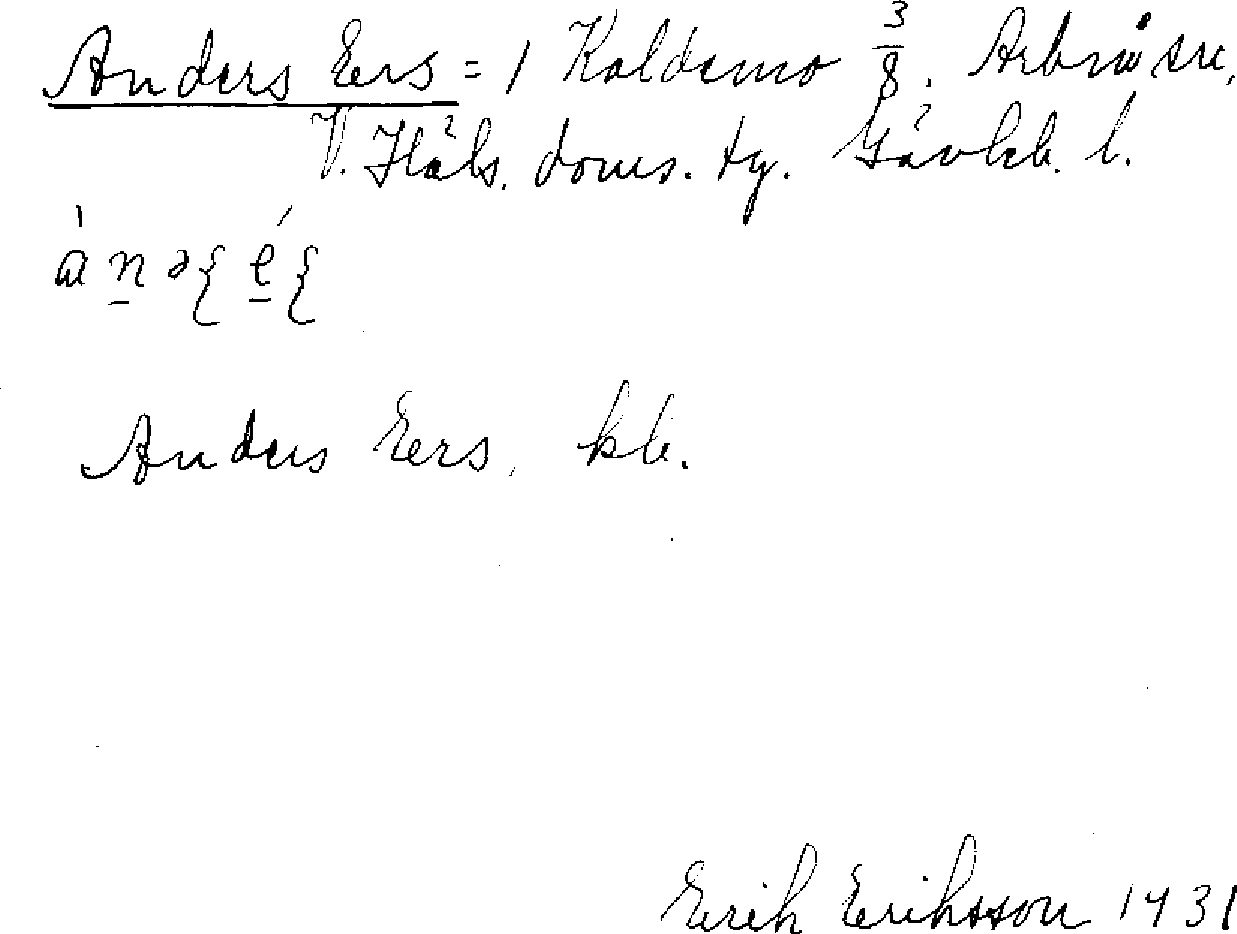 Anders Ers = 1 Koldemo 3/8. Arbrå sn,
V. Häls. doms. tg. Gävleb. l.
Anders Ers, kb.
Erik Eriksson 1931